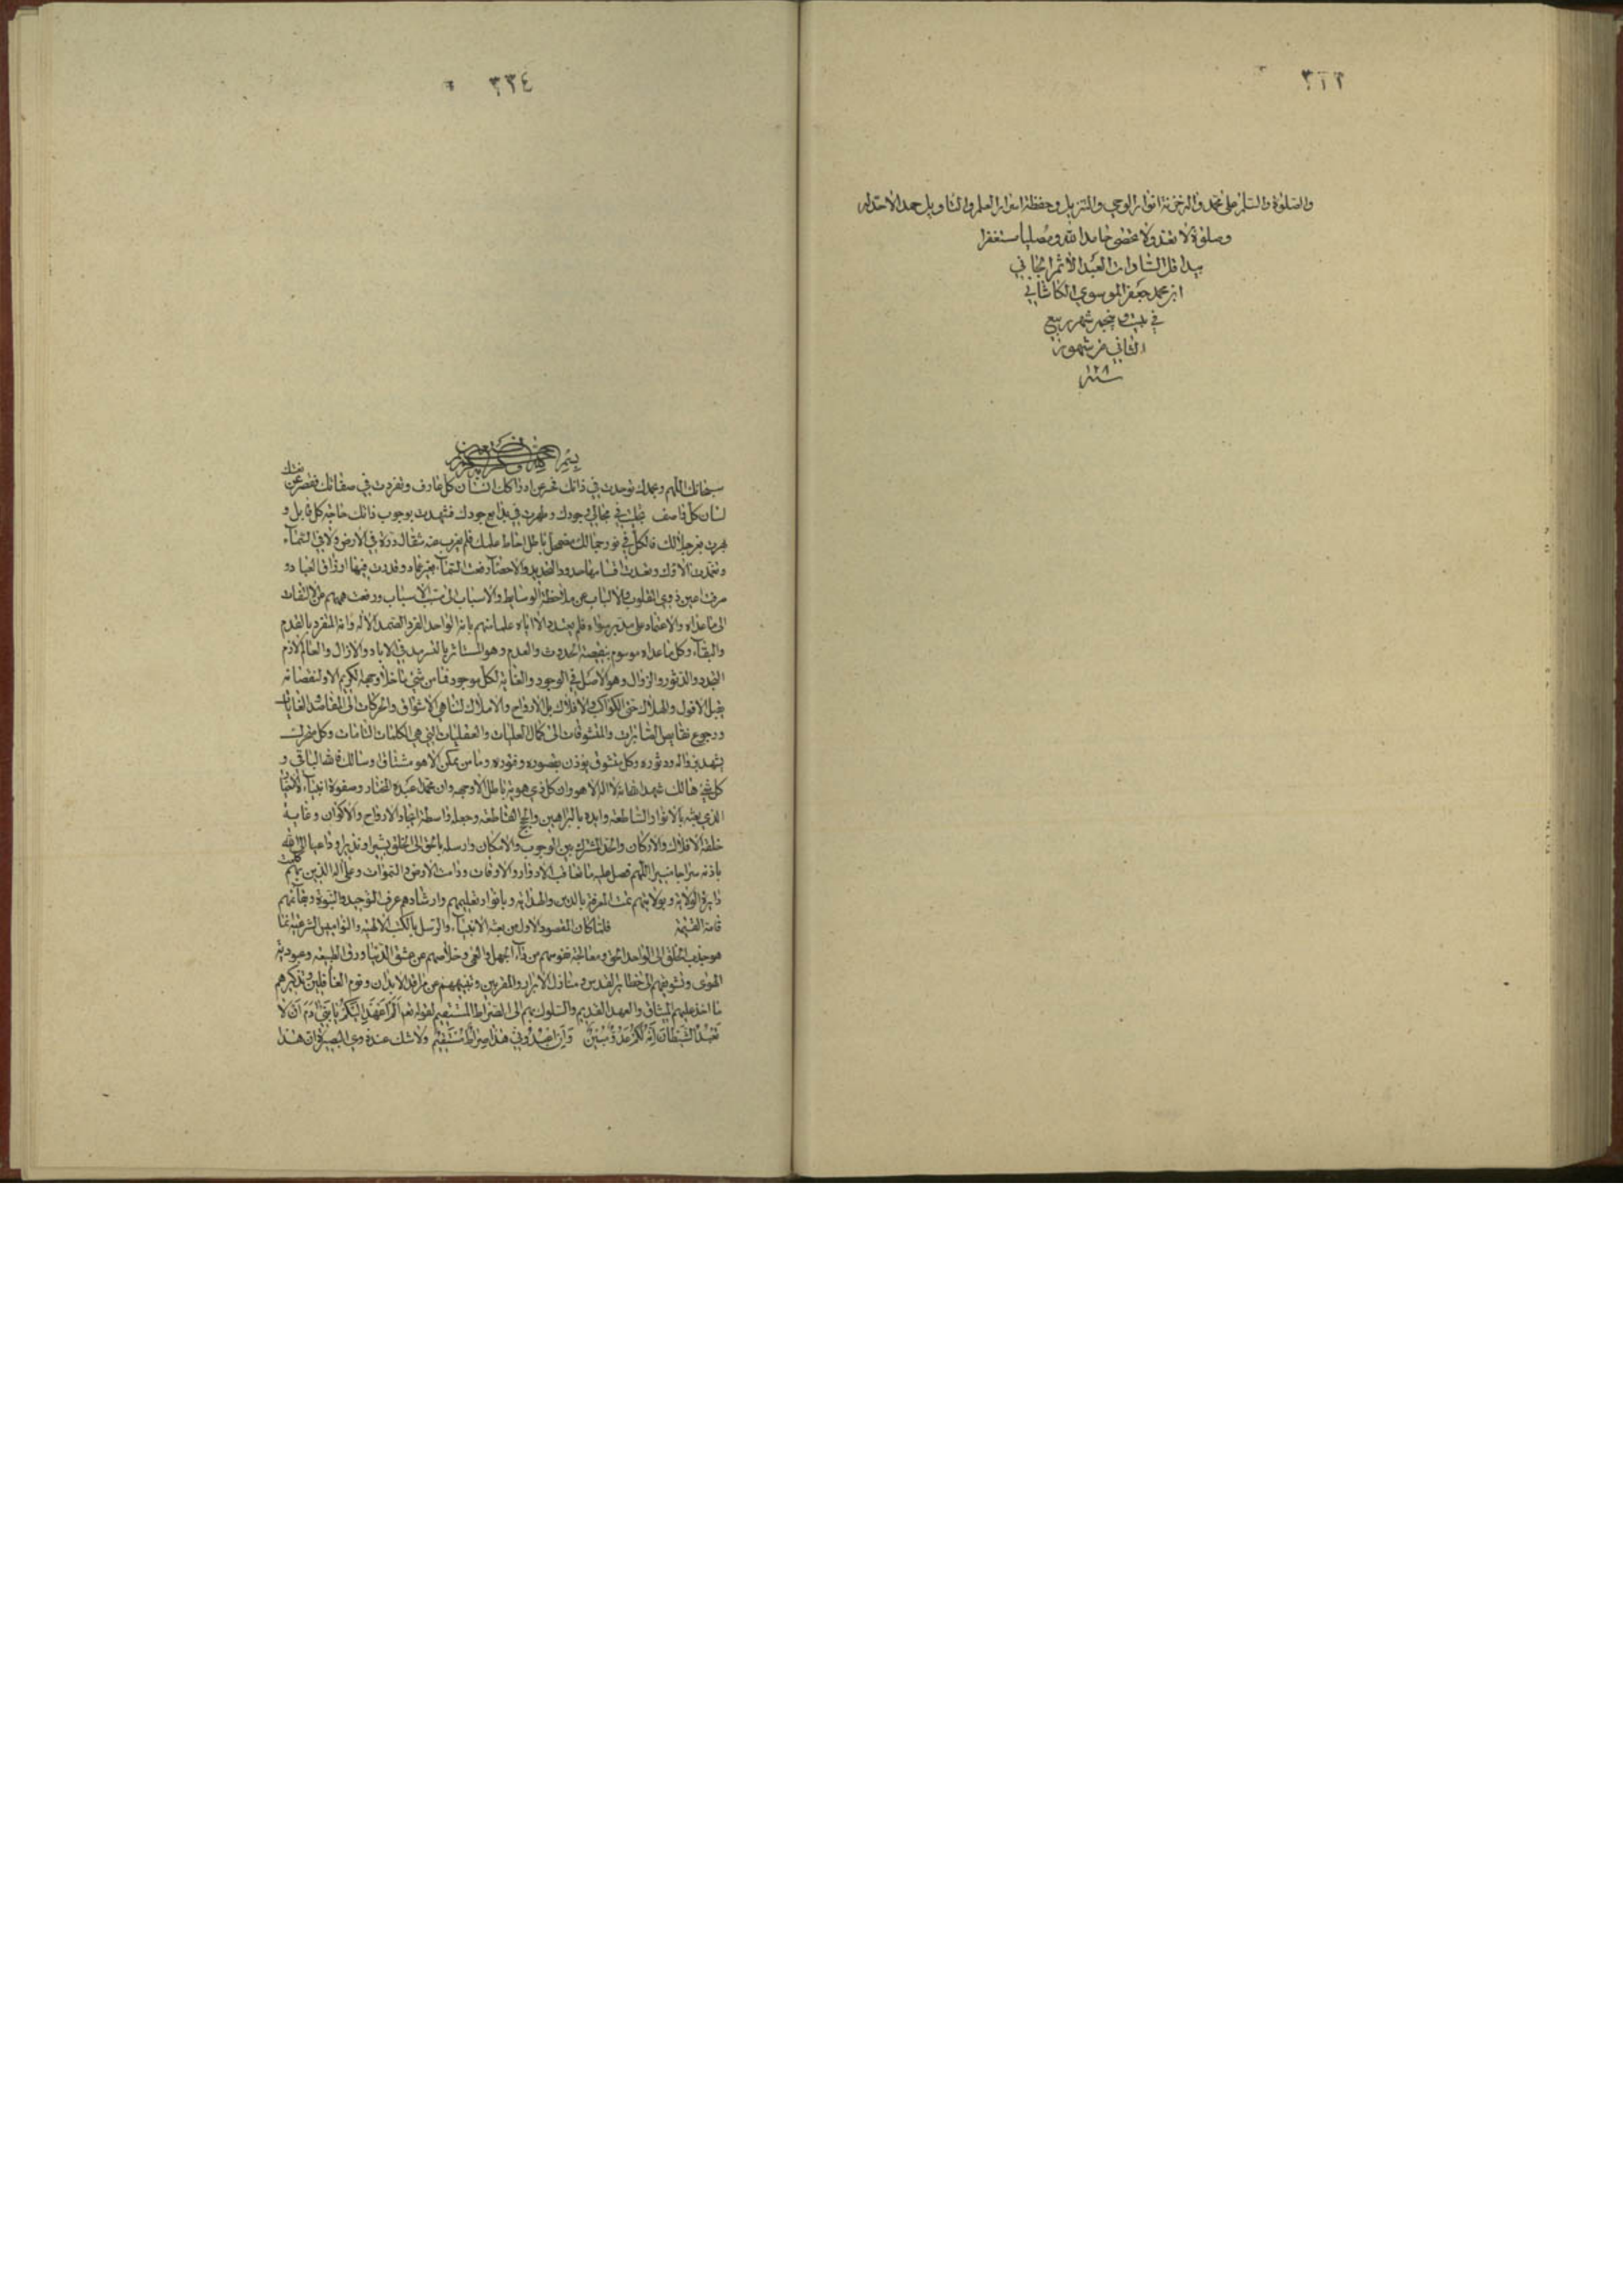 ٣٣٣
والصلوة والسلام على محمد واله خزنة انوار الوحي والتنزيل وحفظة اسرار العلم والتاويل حمدا لا حد له
وصلوة لا تعد ولا تحصى حامدا لله ومصليا مستغفرا
بيد اقل السادات العبد الآثم الجاني
ابن محمد جعفر الموسوي الكاشاني
في بيست وپنجم شهر ربيع
الثاني من شهور
سنة
٣٣٤
بسم الله الرحمن الرحيم
سبحانك اللهم وبحمدك توحدت في ذاتك فحسر عن ادراكك انسان كل عارف وتفردت في صفاتك فقصر عن نعتك
لسان كل واصف تجليت في مجالي وجودك وظهرت في بدايع جودك فشهدت بوجوب ذاتك حاجة كل قابل و
بهرت بعز جلالك فالكل في نور جمالك مضمحل باطل احاط علمك فلم يعزب عنه مثقال ذرة في الارض ولا في السماء
وتقدست الاؤك وتعددت اقسامها حدود التحديد والاحصاء رفعت السماء بغير عماد وقدرت فيها ارزاق العباد و
صرفت اعين ذوي القلوب والالباب عن ملاحظة الوسايط والاسباب الى مسبب الاسباب ورفعت هممهم عن الالتفات
الى ما عداه والاعتماد على مدبر سواه فلم يعبدوا الا اياه علما منهم بانه الواحد الفرد الصمد الاله وانه المنفرد بالقدم
والبقاء وكل ما عداه موسوم بنقيصة الحدوث والعدم وهو المستاثر بالتسرمد في الاباد والازال والعالم لازم
التجدد والدثور والزوال وهو الاصل في الوجود والغاية لكل موجود فما من شئ ما خلا وجهه الكريم الا ولنقصانه
يقبل الافول والهلاك حتى الكواكب والافلاك بل الارواح والاملاك لتناهي الاشواق والحركات الى المقاصد الغايات
ورجوع نقايص المتاثرات والمتشوقات الى كمال العليات والعقليات التي هي الكلمات التامات وكل متحرك
يشهد بزواله ودثوره وكل متشوق يوذن بقصوره وفتوره وما من ممكن الا هو مشتاق وسالك فالله الباقي و
كل شئ هالك شهد الله انه لا اله الا هو وان كل ذي هوية باطل الا وجهه وان محمدا عبده المختار وصفوة انبيائه الاخيار
الذي بعثه بالانوار الساطعة وايده بالبراهين والحجج القاطعة وجعله واسطة ايجاد الارواح والاكوان وغاية
خلقة الافلاك والاركان والحد المشترك بين الوجوب والامكان وارسله بالحق الى الخلق بشيرا ونذيرا وداعيا الى الله
باذنه سراجا منيرا اللهم فصل عليه ما تعاقب الادوار والاوقات ودامت الارض والسموات وعلى اله الذين بهم كملت
دايرة الولاية وبولايتهم تمت المعرفة بالدين والهداية وبانوار تعليمهم وارشادهم عرف التوحيد والنبوة وببقائهم
قامة القيمة فلما كان المقصود الاول من بعثه الانبياء والرسل بالكتب الالهية والنواميس الشرعية انما
هو جذب الخلق الى الواحد الحق ومعالجة نفوسهم من داء الجهل والعمى وخلاصهم عن عشق الدنيا ورق الطبيعة وعبودية
الهوى وتشويقهم الى حظاير القدس ومنازل الابرار والمقربين وتنبيههم عن مراقد الابدان ونوم الغافلين وتذكيرهم
ما اخذ عليهم الميثاق والعهد القديم والسلوك بهم الى الصراط المستقيم لقوله تعالى اَلَمْ اَعْهَدْ اِلَيْكُمْ يَا بَنِي آدَمَ اَنْ لا
تَعْبُدُوا الشَّيْطَانَ اِنَّهُ لَكُمْ عَدُوٌّ مُبِينٌ وَاَنِ اعْبُدُونِي هَذَا صِرَاطٌ مُسْتَقِيمٌ ولا شك عند ذوي البصيرة ان هذا